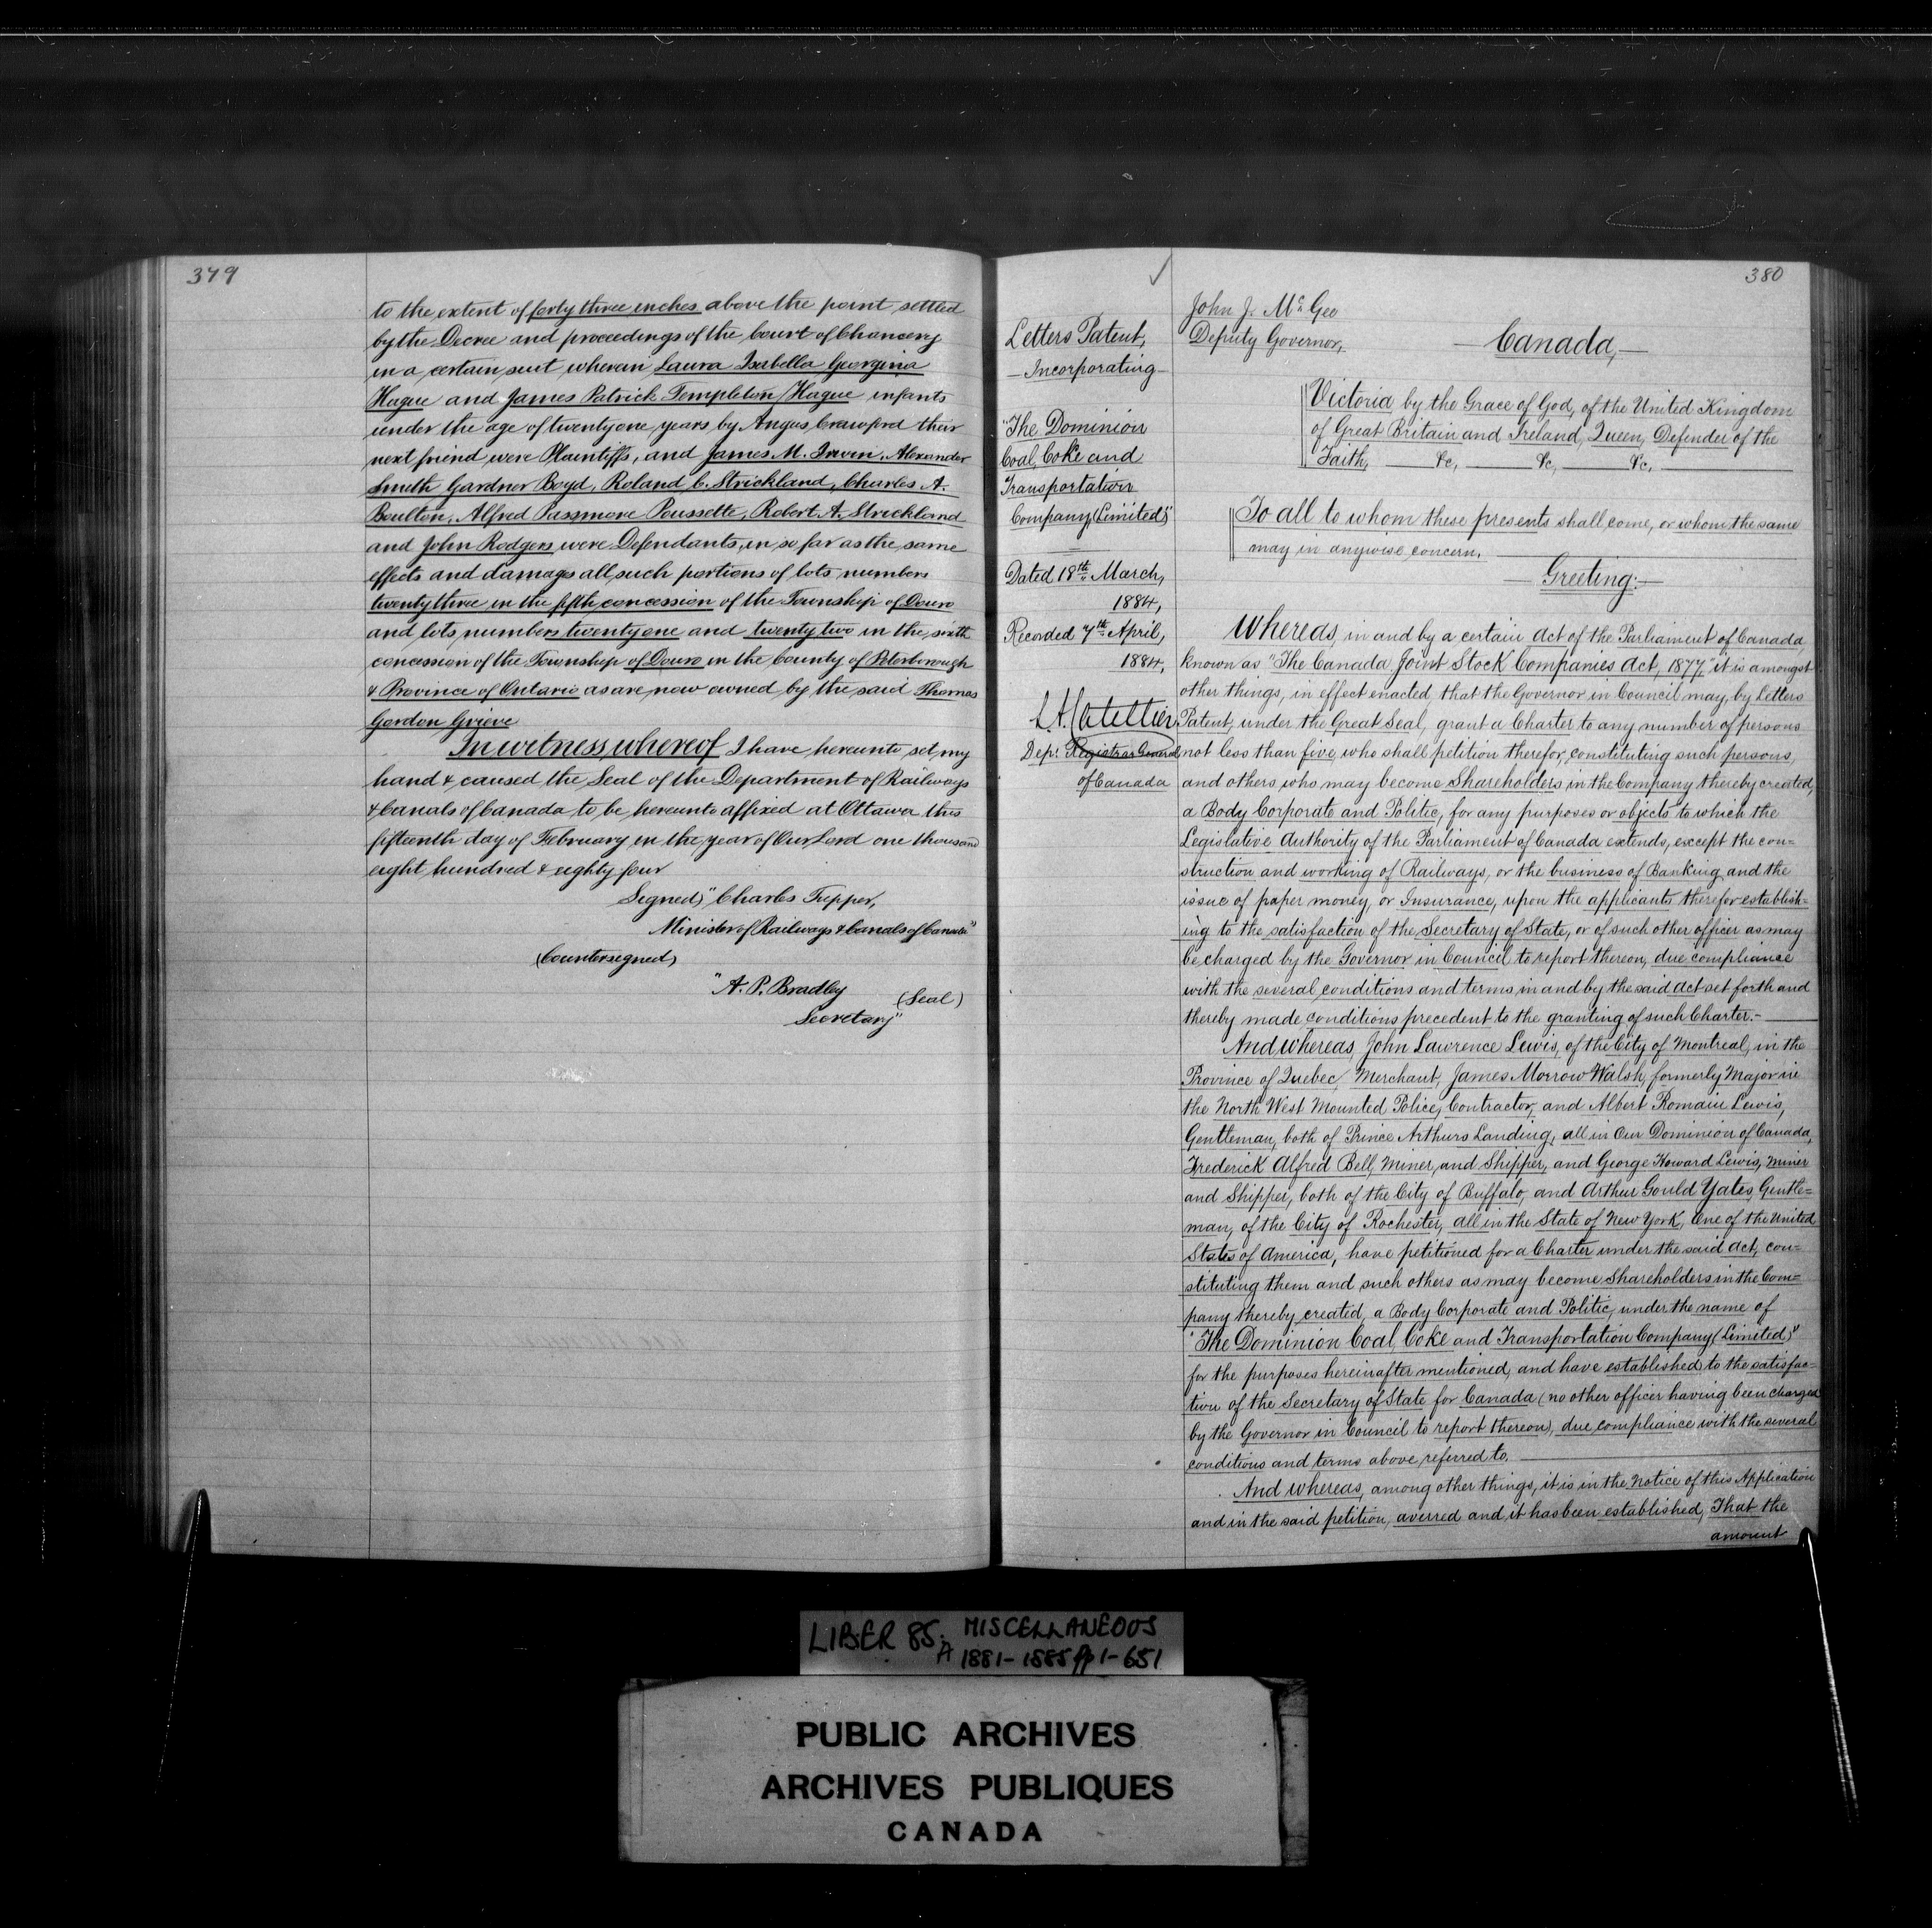 379
to the extent of forty three inches above the point settled
by the Decree and proceedings of the Court of Chancery
in a certain suit wherein Laura Isabella Georgina
Hague and James Patrick Templeton Hague infants
under the age of twenty one years by Angus Crawford their
next friend were Plaintiffs, and James M. Irwin, Alexander
Smith Gardner Boyd, Roland C. Strickland, Charles A.
Boulton, Alfred Passmore Poussette, Robert A. Strickland
and John Rodgers were Defendants, in so far as the same
effects and damages all such portions of lots numbers
twenty three in the fifth concession of the Township of Douro
and lots numbers twenty one and twenty two in the sixth
concession of the Township of Douro in the County of Peterborough
& Province of Ontario as are now owned by the said Thomas
Gordon Grieve
In witness whereof I have hereunto set my
hand & caused the Seal of the Department of Railways
& Canals of Canada to be hereunto affixed at Ottawa this
fifteenth day of February in the year of Our Lord one thousand
eight hundred & eighty four
Signed) "Charles Tupper,
Minister of Railways & Canals of Canada"
(Countersigned)
"A. P. Bradley
(Seal)
Secretary"
380
Letters Patent,
— Incorporating —
"The Dominion
Coal, Coke and
Transportation
Company (Limited)"
Dated 18th March,
1884,
Recorded 7th April,
1884,
L. A. Catellier
Dep: Registrar General
of Canada
John J. McGee
Deputy Governor,
— Canada, —
Victoria, by the Grace of God, of the United Kingdom
of Great Britain and Ireland, Queen, Defender of the
Faith, — &c, — &c, — &c, —
To all to whom these presents shall come, or whom the same
may in anywise concern. —
— Greeting: —
Whereas, in and by a certain Act of the Parliament of Canada,
known as "The Canada Joint Stock Companies Act, 1877," it is amongst
other things, in effect enacted, that the Governor in Council may, by Letters
Patent, under the Great Seal, grant a Charter to any number of persons
not less than five, who shall petition therefor, constituting such persons,
and others who may become Shareholders in the Company thereby created,
a Body Corporate and Politic, for any purposes or objects to which the
Legislative Authority of the Parliament of Canada extends, except the con=
struction and working of Railways, or the business of Banking and the
issue of paper money, or Insurance, upon the applicants therefor establish=
ing to the satisfaction of the Secretary of State, or of such other officer as may
be charged by the Governor in Council to report thereon, due compliance
with the several conditions and terms in and by the said Act set forth and
thereby made conditions precedent to the granting of such Charter. —
And whereas, John Lawrence Lewis, of the City of Montreal, in the
Province of Quebec, Merchant, James Morrow Walsh, formerly Major in
the North West Mounted Police, Contractor, and Albert Romain Lewis,
Gentleman, both of Prince Arthurs Landing, all in Our Dominion of Canada,
Frederick Alfred Bell, Miner, and Shipper, and George Howard Lewis, Miner
and Shipper, both of the City of Buffalo, and Arthur Gould Yates, Gentle=
man, of the City of Rochester, all in the State of New York, One of the United
States of America, have petitioned for a Charter under the said Act, con=
stituting them and such others as may become Shareholders in the Com=
pany thereby created, a Body Corporate and Politic, under the name of
"The Dominion Coal, Coke and Transportation Company (Limited)"
for the purposes hereinafter mentioned, and have established to the satisfac=
tion of the Secretary of State for Canada (no other officer having been charged
by the Governor in Council to report thereon), due compliance with the several
conditions and terms above referred to. —
And whereas, among other things, it is in the Notice of this Application
and in the said petition, averred and it has been established, That the
amount
LIBER 85. MISCELLANEOUS
A 1881-1885 pp 1-651
PUBLIC ARCHIVES
ARCHIVES PUBLIQUES
CANADA